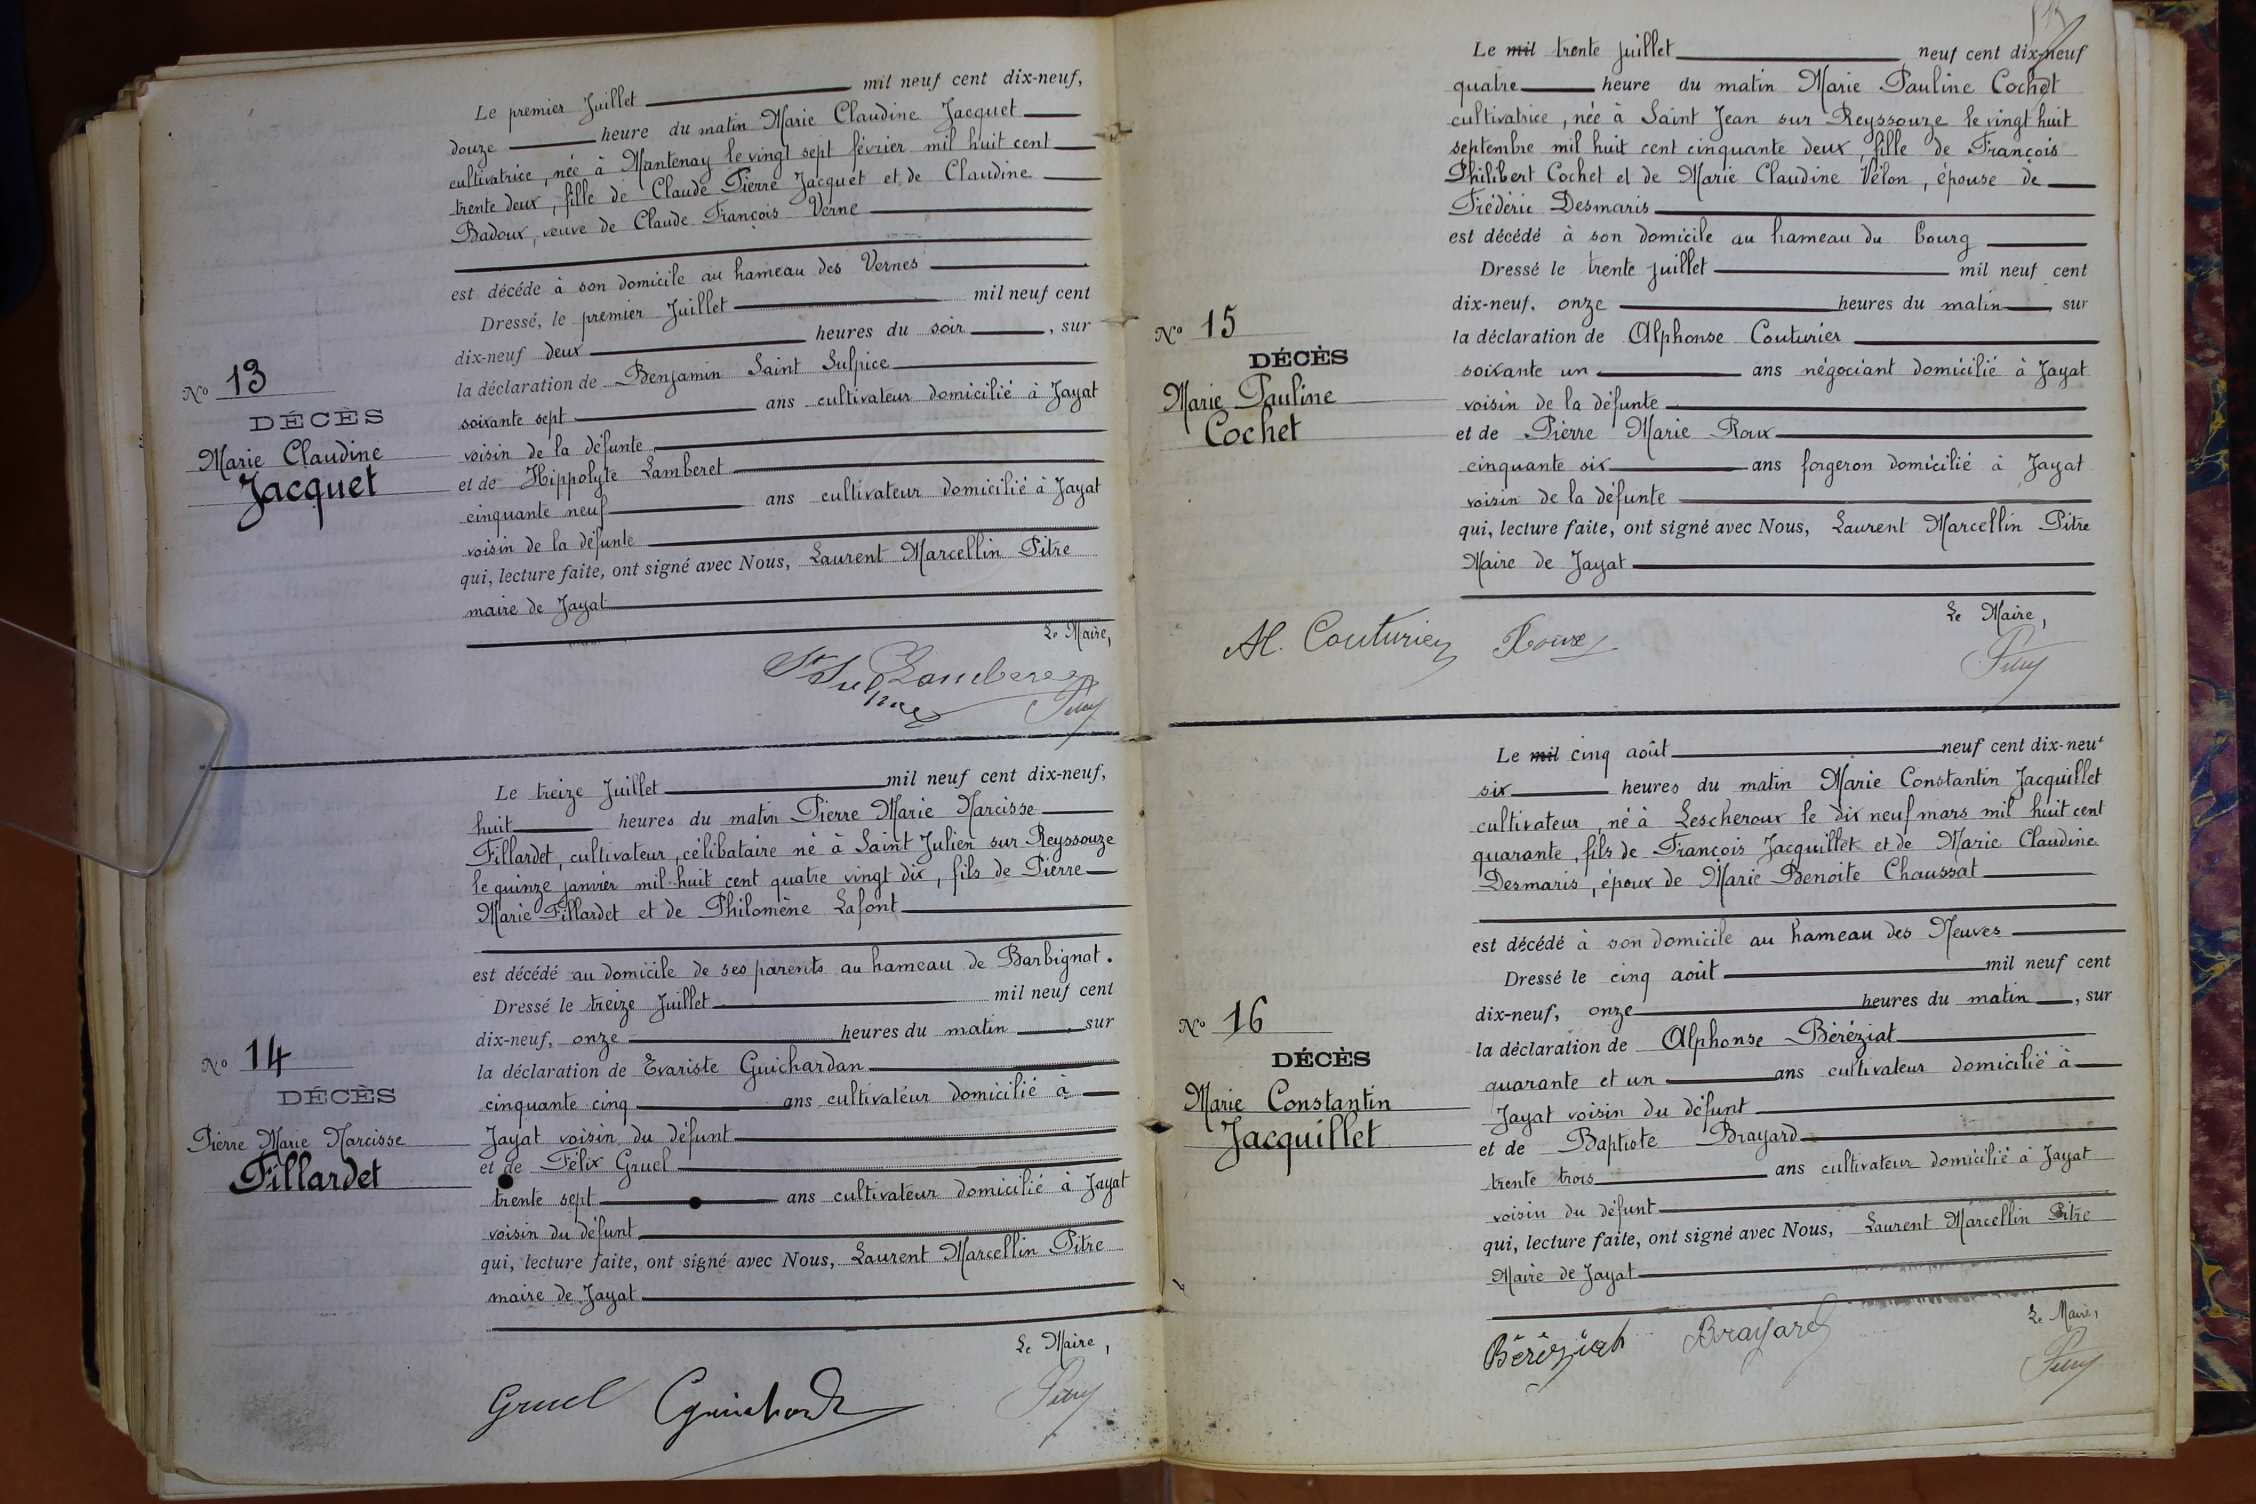 Le premier Juillet mil neuf cent dix-neuf,
douze heure du matin Marie Claudine Jacquet
cultivatrice, née à Mantenay le vingt sept février mil huit cent
trente deux, fille de Claude Pierre Jacquet et de Claudine
Badoux, veuve de Claude François Verne
est décédé à son domicile au hameau des Vernes
Dressé, le premier Juillet mil neuf cent
dix-neuf deux heures du soir, sur
No 13
DÉCÈS
Marie Claudine
Jacquet
la déclaration de Benjamin Saint Sulpice
soixante sept ans cultivateur domicilié à Jayat
voisin de la défunte
et de Hippolyte Lamberet
cinquante neuf ans cultivateur domicilié à Jayat
voisin de la défunte
qui, lecture faite, ont signé avec Nous, Laurent Marcellin Pitre
maire de Jayat
Le Maire,
Lamberet
Le treize Juillet mil neuf cent dix-neuf,
huit heures du matin Pierre Marie Narcisse
Fillardet, cultivateur, célibataire né à Saint Julien sur Reyssouze
le quinze janvier mil huit cent quatre vingt dix, fils de Pierre
Marie Fillardet et de Philomène Lafont
est décédé au domicile de ses parents au hameau de Barbignat.
Dressé le treize Juillet mil neuf cent
dix-neuf, onze heures du matin, sur
No 14
DÉCÈS
Pierre Marie Narcisse
Fillardet
la déclaration de Evariste Guichardan
cinquante cinq ans cultivateur domicilié à
Jayat voisin du défunt
et de Félix Gruel
trente sept ans cultivateur domicilié à Jayat
voisin du défunt
qui, lecture faite, ont signé avec Nous, Laurent Marcellin Pitre
maire de Jayat
Le Maire,
Gruel
Le mil trente juillet neuf cent dix-neuf
quatre heure du matin Marie Pauline Cochet
cultivatrice, née à Saint Jean sur Reyssouze le vingt huit
septembre mil huit cent cinquante deux, fille de François
Philibert Cochet et de Marie Claudine Vélon, épouse de
Frédéric Desmaris
est décédé à son domicile au hameau du Bourg
Dressé le trente juillet mil neuf cent
dix-neuf, onze heures du matin, sur
No 15
DÉCÈS
Marie Pauline
Cochet
la déclaration de Alphonse Couturier
soixante un ans négociant domicilié à Jayat
voisin de la défunte
et de Pierre Marie Roux
cinquante six ans forgeron domicilié à Jayat
voisin de la défunte
qui, lecture faite, ont signé avec Nous, Laurent Marcellin Pitre
Maire de Jayat
Le Maire,
Al. Couturier Roux
Le mil cinq août neuf cent dix-neuf
six heures du matin Marie Constantin Jacquillet
cultivateur, né à Lescheroux le dix neuf mars mil huit cent
quarante, fils de François Jacquillet et de Marie Claudine
Desmaris, époux de Marie Benoite Chaussat
est décédé à son domicile au hameau des Neuves
Dressé le cinq août mil neuf cent
dix-neuf, onze heures du matin, sur
No 16
DÉCÈS
Marie Constantin
Jacquillet
la déclaration de Alphonse Béréziat
quarante et un ans cultivateur domicilié à
Jayat voisin du défunt
et de Baptiste Brayard
trente trois ans cultivateur domicilié à Jayat
voisin du défunt
qui, lecture faite, ont signé avec Nous, Laurent Marcellin Pitre
Maire de Jayat
Le Maire,
Béréziat Brayard